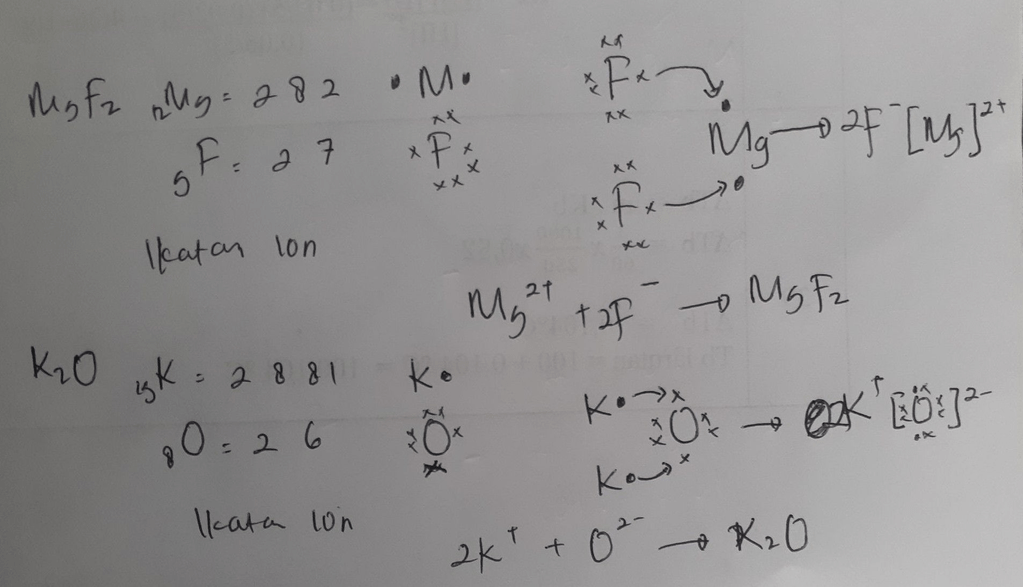 MgF2 12Mg = 2 8 2 •M• F Mg → 2F⁻ [Mg]²⁺
9F = 2 7 F F
Ikatan Ion
Mg²⁺ + 2F⁻ → MgF2
K2O 19K = 2 8 8 1 K• K• → O → 2K⁺ [O]²⁻
8O = 2 6 O K• →
Ikatan Ion
2K⁺ + O²⁻ → K2O